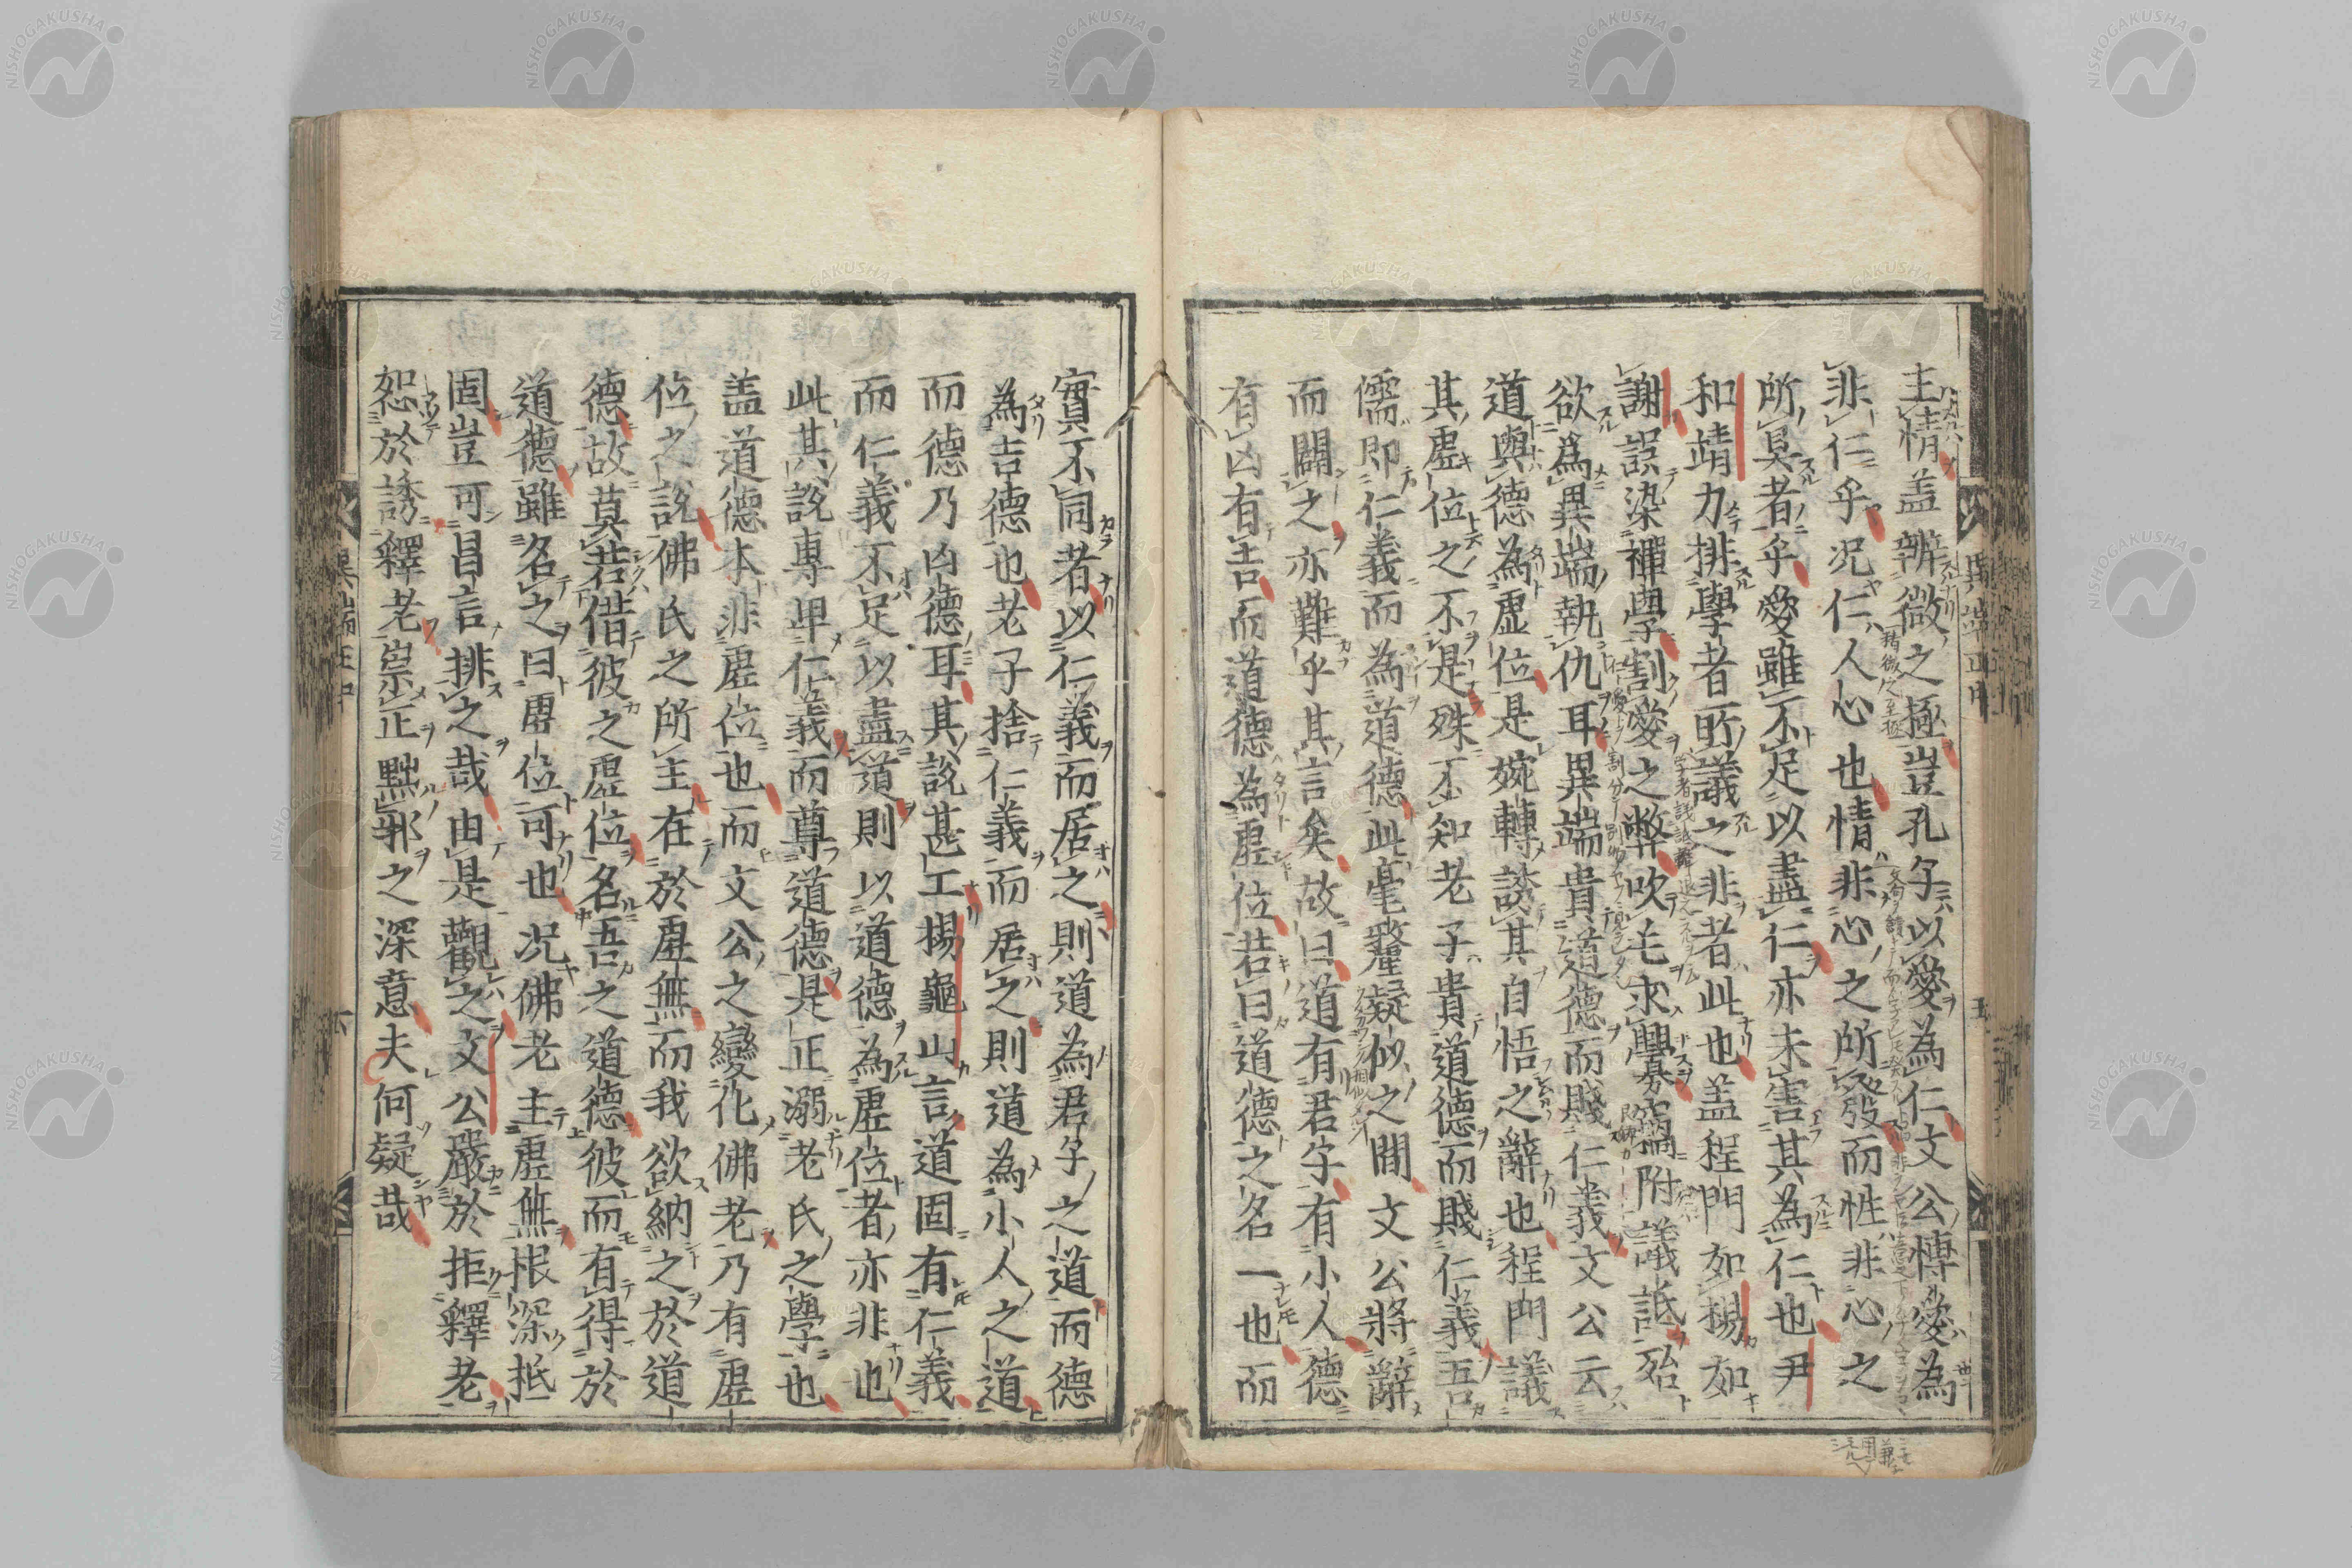 主情盖辨微之極豈孔子以愛為仁文公博愛為
非仁乎况仁人心也情非心之所發而性非心之
所具者乎愛雖不足以盡仁亦未害其為仁也尹
和靖力排學者所議之非者此也盖程門如楊如
謝誤染禪學割愛之弊吹毛求釁附議詆殆
欲為異端執仇耳異端貴道德而賤仁義文公云
道與德為虚位是婉轉談其自悟之辭也程門議
其虚位之不是殊不知老子貴道德而賤仁義吾
儒即仁義而為道德此毫釐疑似之間文公將辭
而闢之亦難乎其言矣故曰道有君子有小人德
有凶有吉而道德為虚位若曰道德之名一也而
實不同者以仁義而居之則道為君子之道而德
為吉德也老子捨仁義而居之則道為小人之道
而德乃凶德耳其説甚工楊龜山言道固有仁義
而仁義不足以盡道則以道德為虚位者亦非也
此其説專卑仁義而尊道德是正溺老氏之學也
盖道德本非虚位也而文公之變化佛老乃有虚
位之説佛氏之所主在於虚無而我欲納之於道
德故莫若借彼之虚位名吾之道德彼而有得於
道德雖名之曰虚位可也况佛老主虚無根深抵
固豈可昌言排之哉由是觀之文公嚴於拒釋老
恕於誘釋老崇正黜邪之深意夫何疑哉